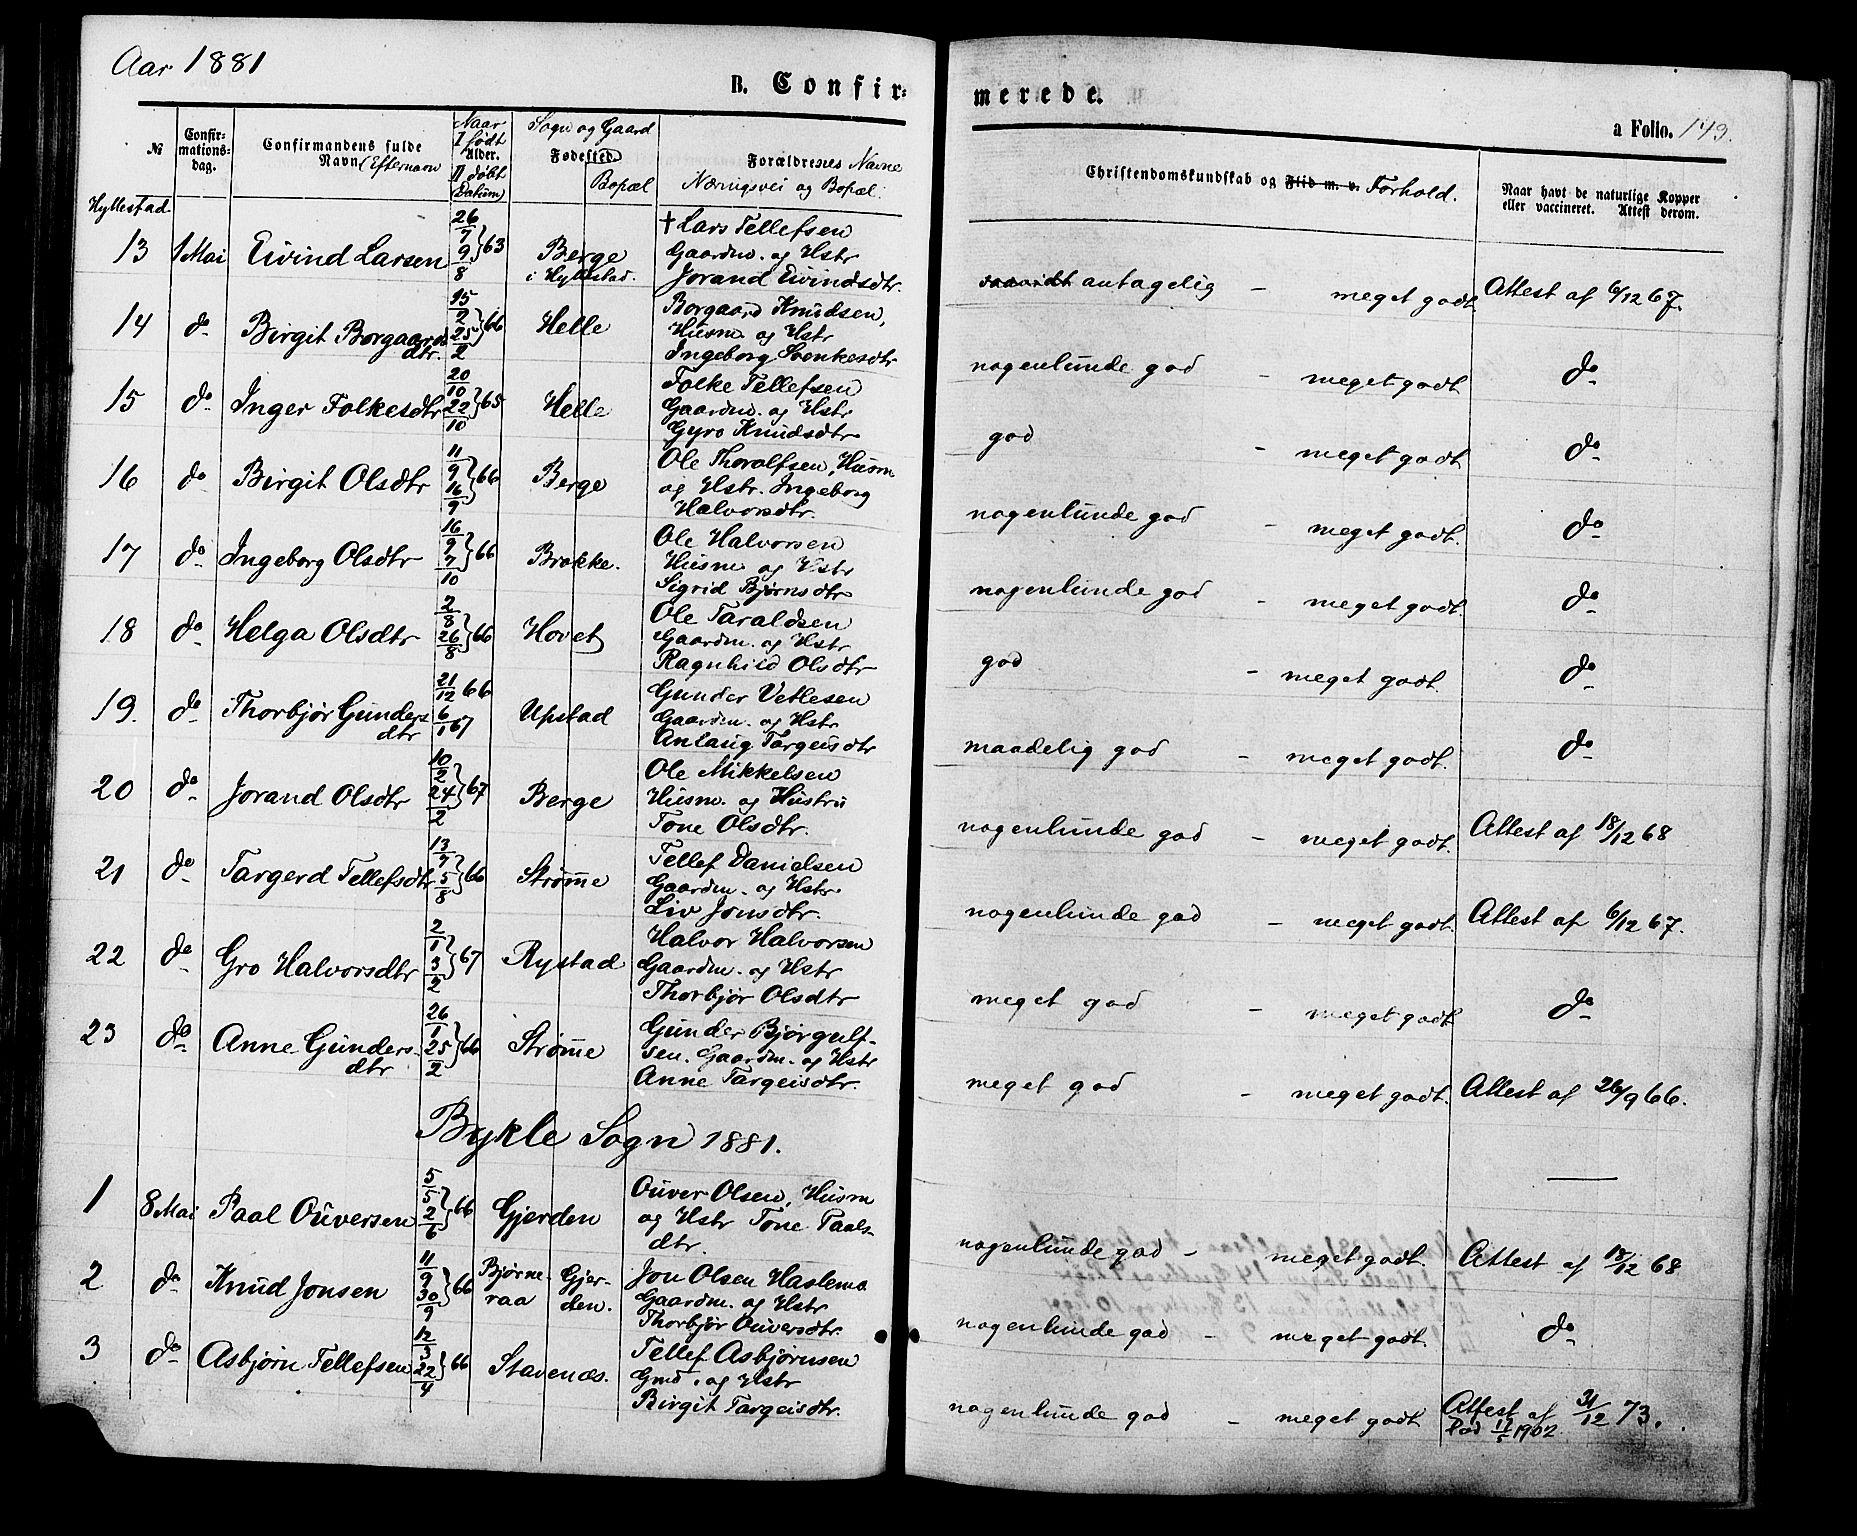 Aar 1881
B. Confirmerede.
a Folio. 143.
№
Confirmationsdag.
Confirmandens fulde Navn (Efternavn
Naar I født Alder. II døbt (Datum)
Sogn og Gaard
Fødested. Bopæl
Forældrenes Navne
Næringsvei og Bopæl.
Christendomskundskab og Flid m. v. Forhold.
Naar havt de naturlige Kopper eller vaccineret. Attest derom.
Hyllestad
13 1 Mai Eivind Larsen 26/7 9/8 } 63 Berge i Hyllestad. † Lars Tellefsen Gaardm. og Hstr Jorand Eivindsdtr. antagelig - meget godt. Attest af 6/12 67.
14 do Birgit Borgaardsdtr. 15/2 25/2 } 66 Helle Borgaard Knudsen, Husm og Hstr Ingeborg Svenkesdtr nogenlunde god - meget godt do
15 do Inger Folkesdtr 20/10 22/10 } 65 Helle Folke Tellefsen Gaardm. og Hstr Gyro Knudsdtr god - meget godt do
16 do Birgit Olsdtr 11/9 16/9 } 66 Berge Ole Thoralfsen, Husm og Hstr. Ingeborg Halvorsdtr. nogenlunde god - meget godt. do
17 do Ingeborg Olsdtr 16/9 7/10 } 66 Brokke. Ole Halvorsen Husm og Hstr Sigrid Bjørnsdtr nogenlunde god - meget godt. do
18 do Helga Olsdtr 2/8 26/8 } 66 Hovet Ole Taraldsen Gaardm. og Hstr Ragnhild Olsdtr god - meget godt. do
19. do Thorbjør Gundersdtr 21/12 66 6/1 67 Upstad Gunder Vetlesen Gaardm. og Hstr Anlaug Targeisdtr maadelig god - meget godt. do
20 do Jorand Olsdtr 10/2 24/2 } 67 Berge Ole Mikkelsen Husm. og Hustru Tone Olsdtr. nogenlunde god - meget godt. Attest af 18/12 68
21 do Targerd Tellefsdtr 13/7 5/8 } 66 Strømme Tellef Danielsen Gaardm. og Hstr. Liv Jonsdtr. nogenlunde god - meget godt. Attest af 6/12 67.
22 do Gro Halvorsdtr 2/1 3/2 } 67 Rystad Halvor Halvorsen Gaardm. og Hstr Thorbjør Olsdtr meget god - meget godt do
23 do Anne Gundersdtr 26/1 25/2 } 66 Strømme Gunder Bjørgulfsen. Gaardm. og Hstr Anne Targeisdtr. meget god - meget godt. Attest af 26/9 66.
Bykle Sogn 1881.
1 8 Mai Paal Ouversen 5/5 2/6 } 66 Gjerden Ouver Olsen, Husm og Hstr Tone Paalsdtr. nogenlunde god - meget godt. Attest af 18/12 68
2 do Knud Jonsen 11/9 30/9 } 66 Bjørneraa Gjerden. Jon Olsen Haslemo Gaardm. og Hstr Thorbjør Ouversdtr. nogenlunde god - meget godt. do
3 do Asbjørn Tellefsen 12/3 22/4 } 66 Stavenæs. Tellef Asbjørnsen Gmd. og Hstr Birgit Targeisdtr. nogenlunde god - meget godt Attest af 31/12 73.
17/5 1902